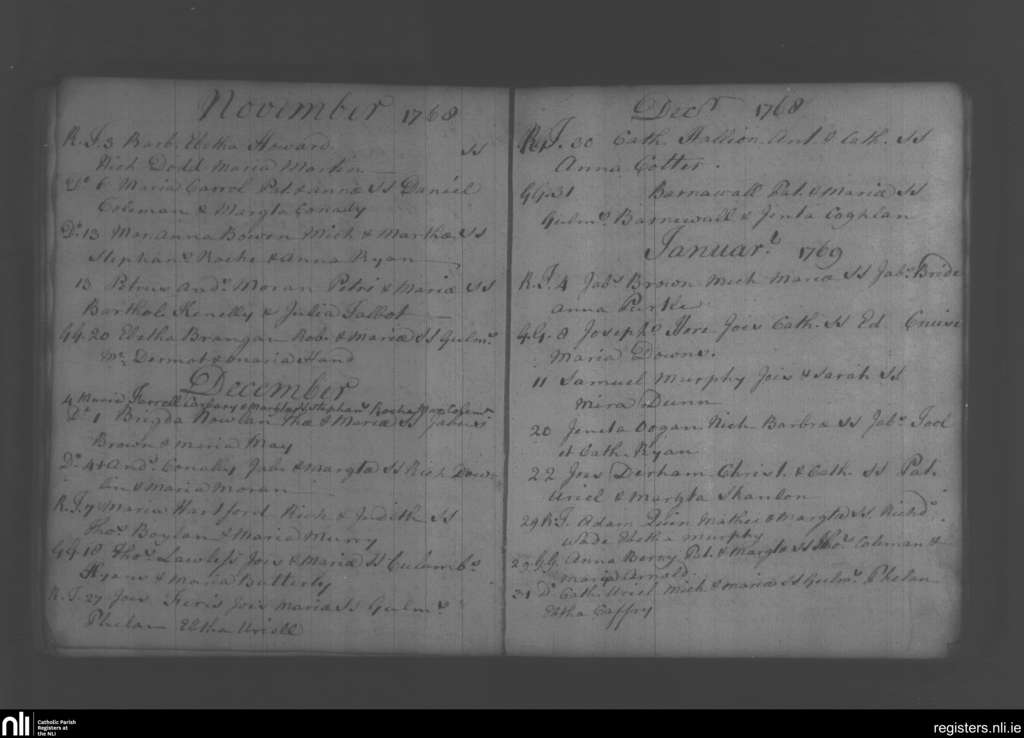 November 1768
R. J. 3 Barb. Ebtha Howard SS
Rich Dodd Maria Martin
Do 6 Maria Carrol Pat. & anna SS Daniel
Coleman & Margta Conady
Do. 13 Marianna Bowen Mich & Martha SS
Stephans Roche & Anna Ryan
13 Petrus Ands. Moran Petri & Maria SS
Barthol Kenelly & Julia Talbot
GG. 20 Ebtha Brangan Rob. & Maria SS Gulms.
Mc Dermot & Maria Hand
December
4 Maria Farrell & Margta SS Stephans Roche
Do 1 Brigda Nowlan Tha & Maria SS Jabus
Brown & Maria May
Do. 4 Ands. Conally Jabi & Margta SS Rich Dow
lin & Maria Moran
R. J. 7 Maria Hartford Rich & Judith SS
Thos. Boylan & Maria Murry
GG 18 Thos. Lawless Jois & Maria SS Culumbs
Ryan & Maria Butterly
R. J. 27 Jois Jois Maria SS Gulms.
Phelan Ebtha Uriell
Decr 1768
R. J. 30 Cath. Hallion Ant. & Cath. SS
Anna Cotter.
GG 31 Barnawall Pat. & Maria SS
Gulms. Barnewall & Jenta Coghlan
Januar. 1769
R. J. 4 Jabs Brown Mich Maria SS Jabs. Bride
Anna
G.G. 8 Josephs Hore Jois Cath. SS Ed Cruise
Maria Downs.
11 Samuel Murphy Jois & Sarah SS
Mira Dunn
20 Jeneta Dogan Rich Barbra SS Jabs. Tool
et Cath. Ryan
22 Jois Derham Christ. & Cath. SS Pat.
Uriel & Margta Shanlon
29 R. J. Adam Quin Mathei & Margta SS Richds
Wade Ebtha Murphy
29 GG. Anna Berry Pat. & Margta SS Thos. Coleman &
Maria Arnold
31 Do Cath. Uriel Mich & Maria SS Gulms. Phelan
Ebtha Caffry
nli
Catholic Parish
Registers at
the NLI
registers.nli.ie